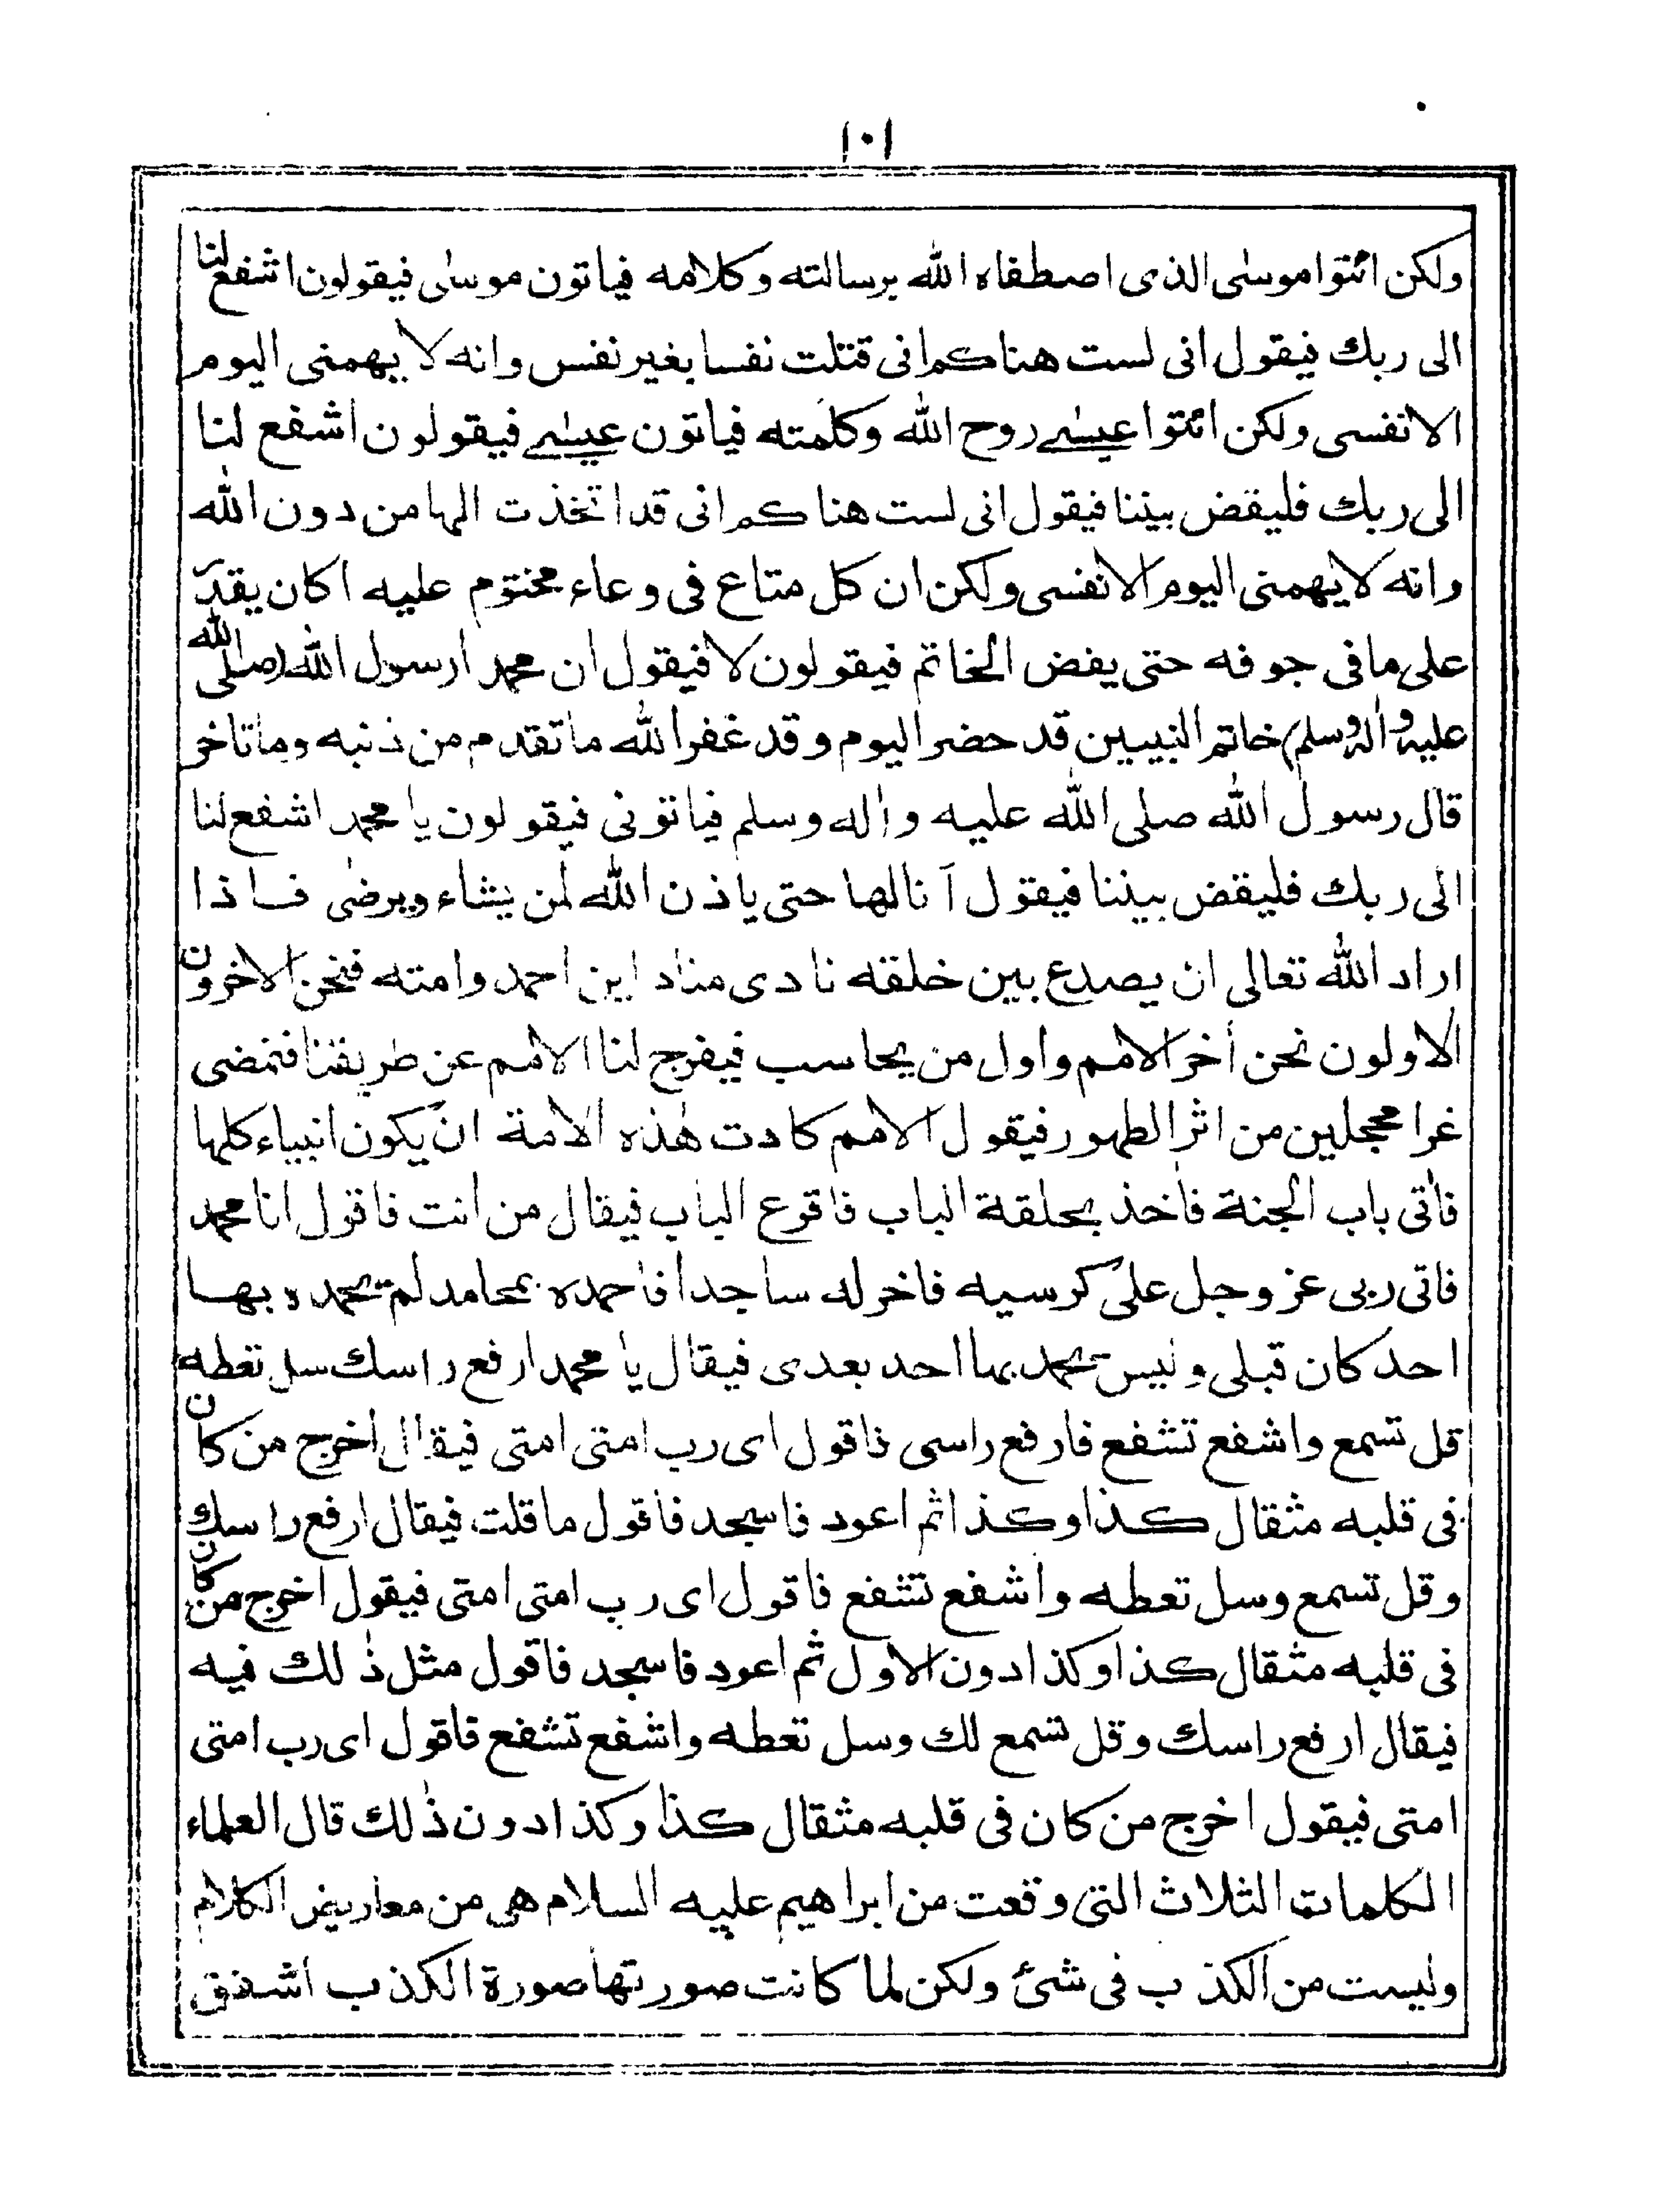 ١٠١
ولكن ائتوا موسٰى الذى اصطفاه الله برسالته وكلامه فياتون موسٰى فيقولون اشفع لنا
الى ربك فيقول انى لست هناكم انى قتلت نفسا بغير نفس وانه لا يهمنى اليوم
الا نفسى ولكن ائتوا عيسٰے روح الله وكلمته فياتون عيسٰے فيقولون اشفع لنا
الى ربك فليقض بيننا فيقول انى لست هناكم انى قد اتخذت الها من دون الله
وانه لا يهمنى اليوم الا نفسى ولكن ان كل متاع فى وعاء مختوم عليه اكان يقدر
على ما فى جوفه حتى يفض الخاتم فيقولون لا فيقول ان محمدا رسول الله (صلى الله
عليه واٰله وسلم) خاتم النبيين قد حضر اليوم وقد غفر الله ما تقدم من ذنبه وما تاخر
قال رسول الله صلى الله عليه واٰله وسلم فياتونى فيقولون يا محمد اشفع لنا
الى ربك فليقض بيننا فيقول آنا لها حتى ياذن الله لمن يشاء ويرضى فاذا
اراد الله تعالى ان يصدع بين خلقه نادى مناد اين احمد وامته فنحن الاخرون
الاولون نحن أخر الامم واول من يحاسب فيفرج لنا الامم عن طريقنا فنمضى
غرا محجلين من اثر الطهور فيقول الامم كادت هٰذه الامة ان يكون انبياء كلها
فأتى باب الجنة فأخذ بحلقة الباب فاقرع الباب فيقال من انت فاقول انا محمد
فاتى ربى عز وجل على كرسيه فاخر له ساجدا فاحمده بمحامد لم يحمده بها
احد كان قبلى وليس يحمد بها احد بعدى فيقال يا محمد ارفع راسك سل تعطه
قل تسمع واشفع تشفع فارفع راسى فاقول اى رب امتى امتى فيقال اخرج من كان
فى قلبه مثقال كذا وكذا ثم اعود فاسجد فاقول ما قلت فيقال ارفع راسك
وقل تسمع وسل تعطه واشفع تشفع فاقول اى رب امتى امتى فيقول اخرج من كان
فى قلبه مثقال كذا وكذا دون الاول ثم اعود فاسجد فاقول مثل ذٰلك فيه
فيقال ارفع راسك وقل تسمع لك وسل تعطه واشفع تشفع فاقول اى رب امتى
امتى فيقول اخرج من كان فى قلبه مثقال كذا وكذا دون ذٰلك قال العلماء
الكلمات الثلاث التى وقعت من ابراهيم عليه السلام هى من معاريض الكلام
وليست من الكذب فى شئ ولكن لما كانت صورتها صورة الكذب اشفق